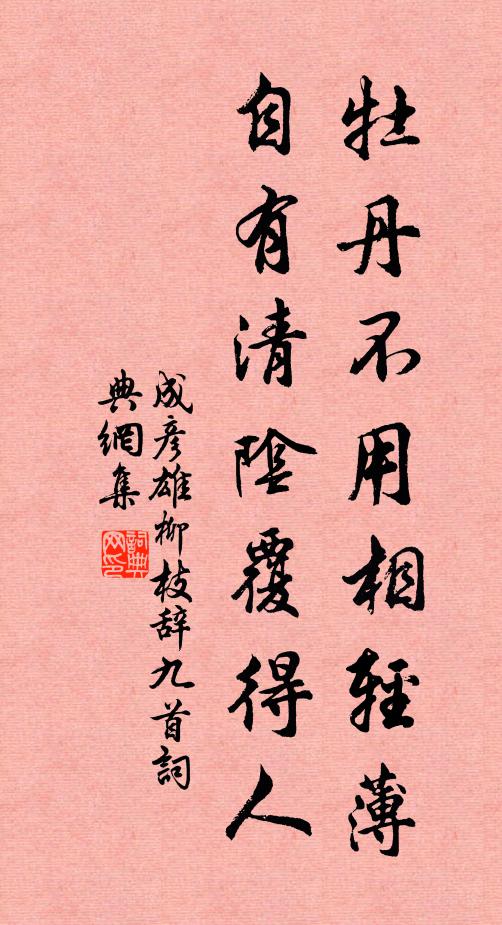 牡丹不用相輕薄
自有清陰覆得人
成彥雄柳枝辞九首詞
典網集
詞典网印